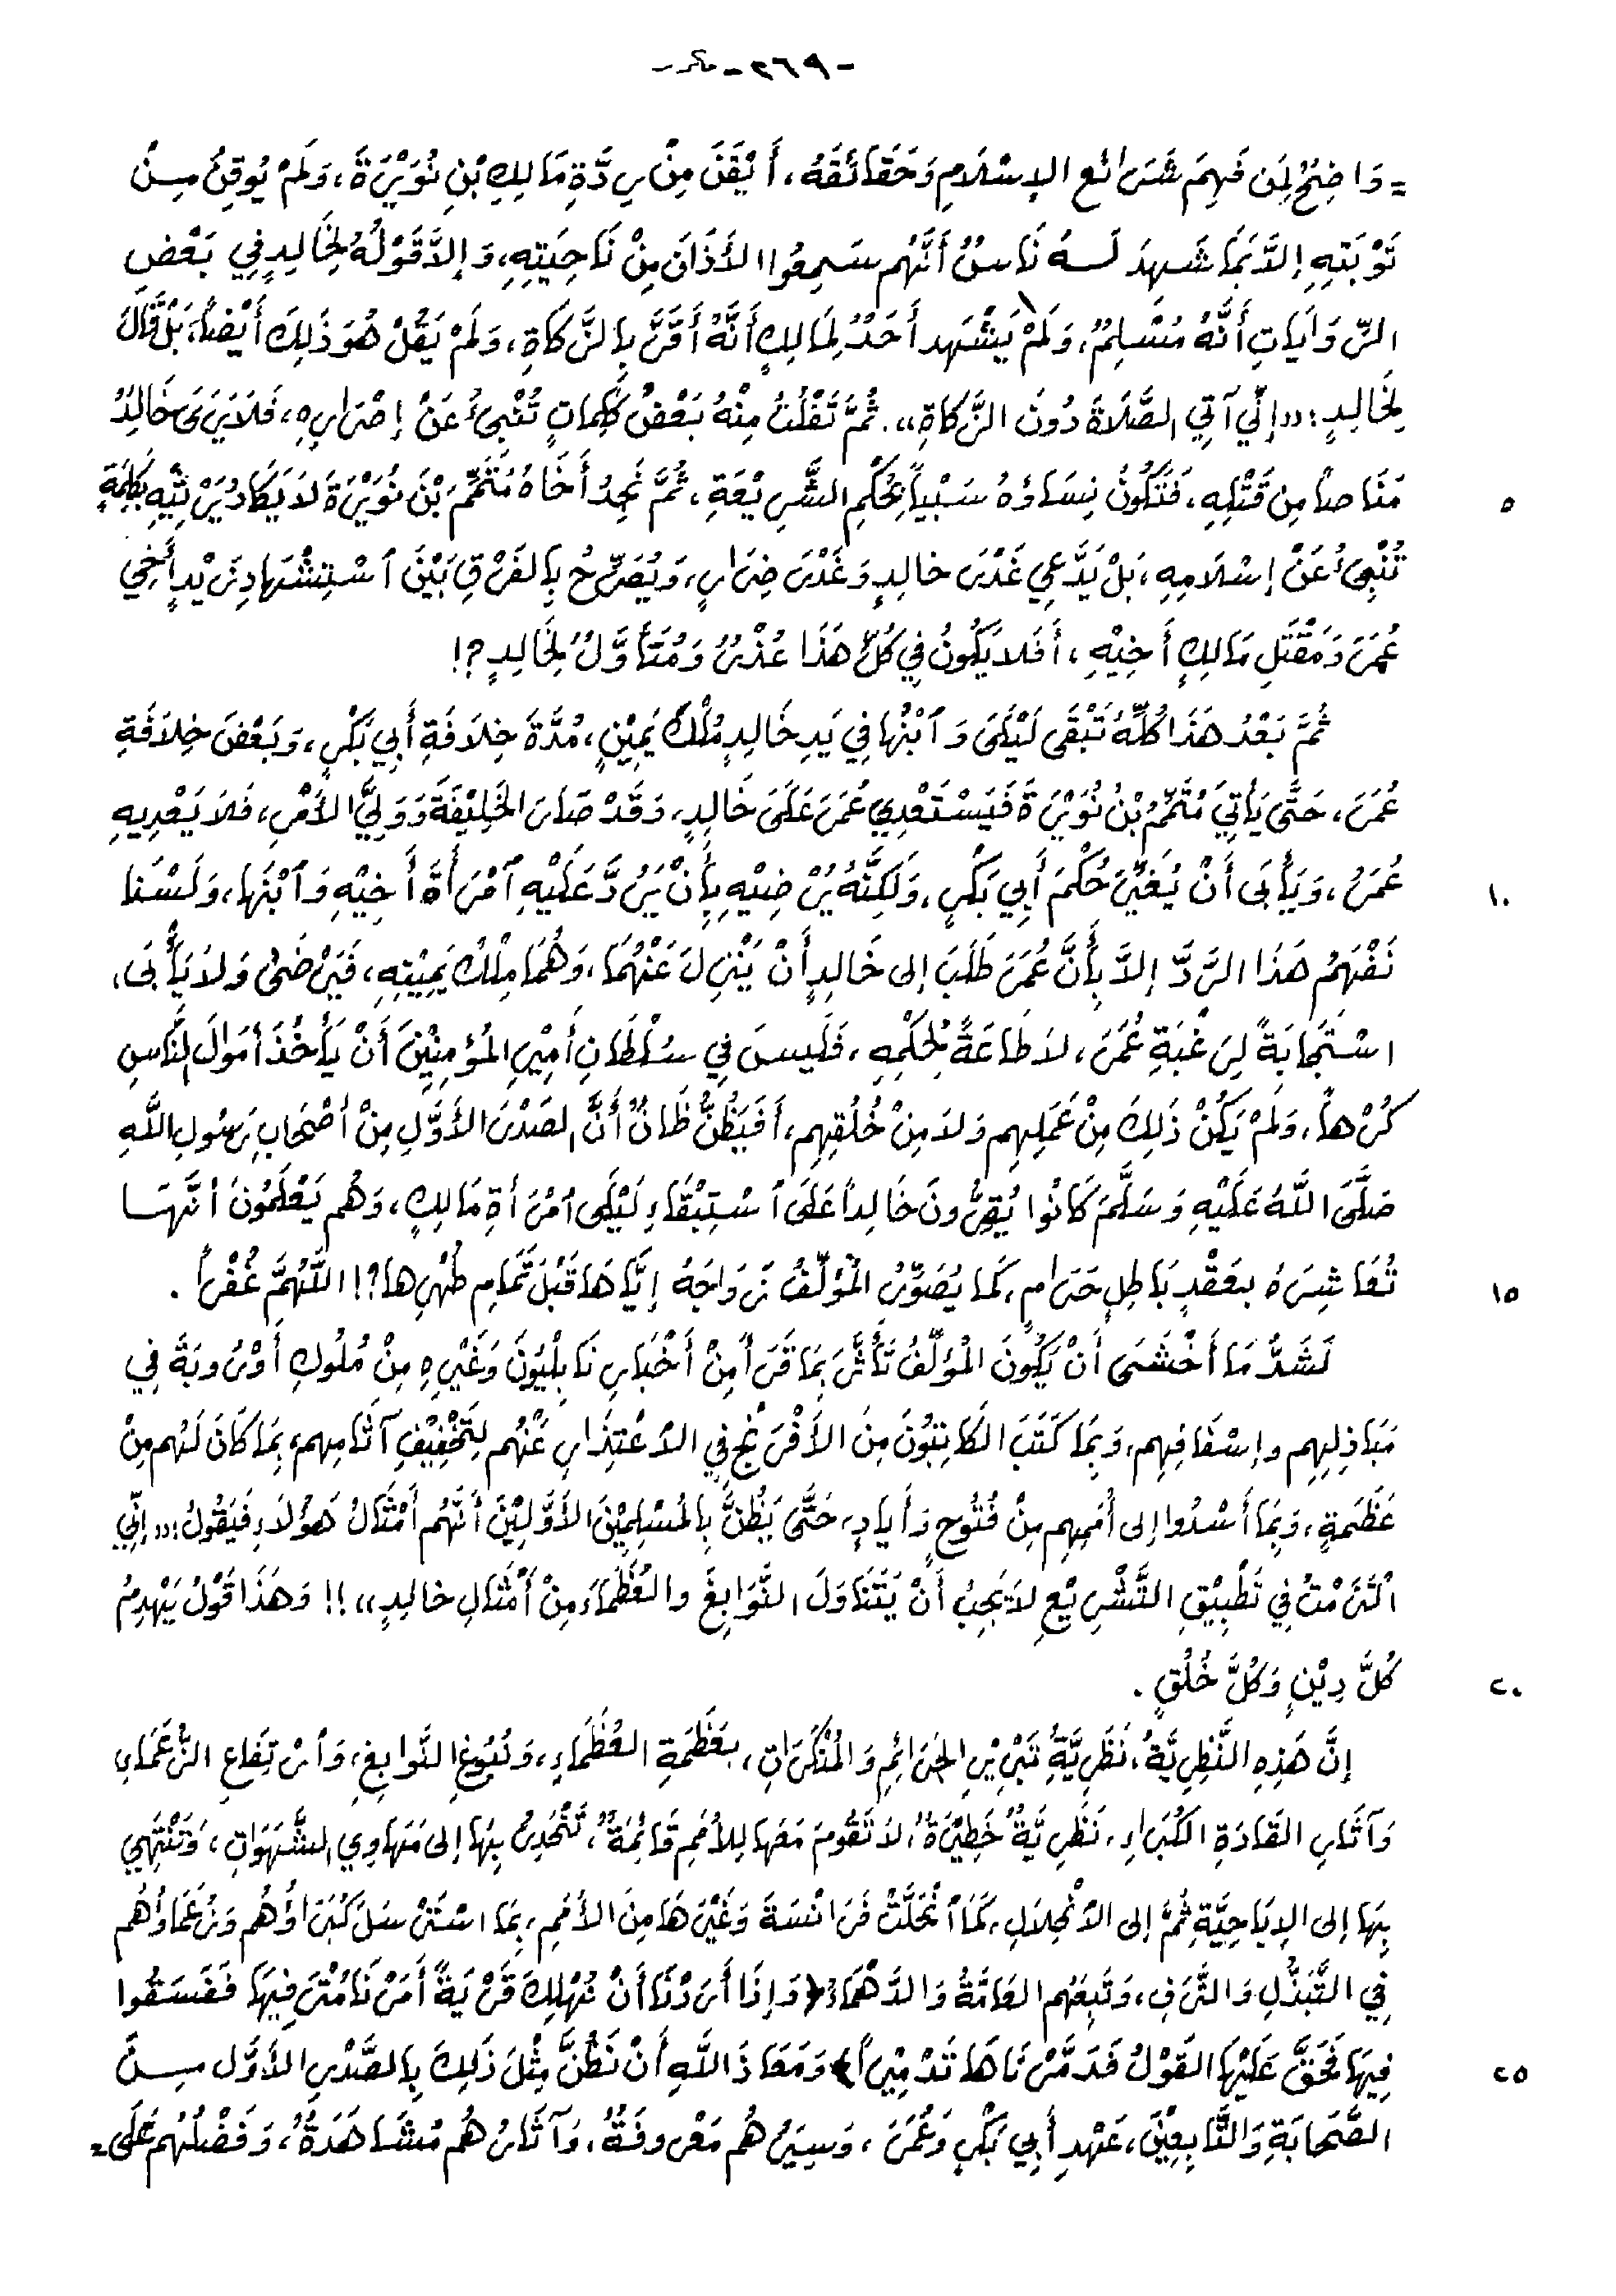 -٢٦٩-
= وَاضِحٌ لِمَن فَهِمَ شَرَائع الإِسْلَامِ وَحَقَائقَهُ، أَيْقَنَ مِنْ رِدَّةِ مَالِكِ بْنِ نُوَيْرَةَ، وَلَمْ يُوقِنْ مِنْ
تَوْبَتِهِ إلاَّ بَمَا شَهِدَ لَهُ نَاسٌ أَنَّهُم سَمِعُوا الأَذَانَ مِنْ نَاحِيَتِهِ، وَإلاَّ قَوْلُهُ لِخَالِدٍ فِي بَعْضِ
الرِّوَايَاتِ أَنَّهُ مُسْلِمٌ، وَلَمْ يَشْهَد أَحَدٌ لِمَالِكٍ أَنَّهُ أَقَرَّ بِالزَّكَاةِ، وَلَمْ يَقُلْ هُوَ ذَلِكَ أَيْضاً، بَلْ قَالَ
لِخَالِدٍ: «إنِّي آتِي الصَّلَاةَ دُونَ الزَّكَاةِ». ثُمَّ تَفْلُتُ مِنْهُ بَعْضُ كَلِمَاتٍ تُنْبِىءُ عَنْ إصْرَارِهِ، فَلاَ يَرَى خَالِدٌ
٥ مَنَاصاً مِن قَتْلِهِ، فَتَكُونُ نِسَاؤهُ سَبْياً بِحُكْمِ الشَّرِيْعَةِ، ثُمَّ نَجِدُ أَخَاهُ مُتَمِّمَ بْنَ نُوَيْرَةَ لاَ يَكَادُ يَرْثِيْهِ بِكَلِمَةٍ
تُنْبِىءُ عَنْ إسْلَامِهِ، بَلْ يَدَّعِي غَدْرَ خالِدٍ وَغَدْرَ ضِرَارٍ، وَيُصَرِّحُ بِالفَرْقِ بَيْنَ ٱسْتِشْهَادِ زَيْدٍ أَخِي
عُمَرَ وَمَقْتَلِ مَالِكٍ أَخِيْهِ، أَفَلاَ يَكُونُ فِي كُلِّ هَذَا عُذْرٌ وَمُتَأَوَّلٌ لِخَالِدٍ؟!
ثُمَّ بَعْدُ هَذَا كُلِّهِ تَبْقَى لَيْلَى وَٱبْنُهَا فِي يَدِ خَالِدٍ مُلْكَ يَمِيْنٍ، مُدَّةَ خِلاَفَةِ أَبِي بَكْرٍ، وَبَعْضَ خِلَافَةِ
عُمَرَ، حَتَّى يَأتِيَ مُتَمِّمُ بْنُ نُوَيْرَةَ فَيَسْتَعْدِيَ عُمَرَ عَلَى خَالِدٍ، وَقَدْ صَارَ الخَلِيْفَةَ وَوَلِيَّ الأَمْرِ، فَلاَ يَعْدِيهِ
١٠ عُمَرُ، وَيَأْبَى أَنْ يُغَيِّرَ حُكْمَ أَبِي بَكْرٍ، وَلَكِنَّهُ يُرْضِيْهِ بِأَنْ يَرُدَّ عَلَيْهِ ٱمْرَأَةَ أَخِيْهِ وَٱبْنَهَا، وَلَسْنَا
نَفْهَمُ هَذَا الرَّدَّ إلاَّ بِأَنَّ عُمَرَ طَلَبَ إلى خَالِدٍ أَنْ يَنْزِلَ عَنْهُمَا، وَهُمَا مِلْكُ يَمِيْنِهِ، فَيَرْضَىٰ وَلاَ يَأْبَى،
اسْتِجَابَةً لِرَغْبَةِ عُمَرَ، لاَ طَاعَةً لِحُكْمِهِ، فَلَيسَ فِي سُلْطَانِ أَمِيْرِ المُؤمِنِيْنَ أَنْ يَأْخُذَ أَموَالَ النَّاسِ
كُرْهاً، وَلَمْ يَكُنْ ذَلِكَ مِنْ عَمَلِهِم وَلاَ مِنْ خُلُقِهِم، أَفَيَظُنُّ ظَانٌّ أَنَّ الصَدْرَ الأَوَّلِ مِنْ أَصْحَابِ رَسُولِ اللَّهِ
صَلَّى اللَّهُ عَلَيْهِ وَسَلَّمَ كَانُوا يُقِرُّونَ خَالِداً عَلَى ٱسْتِبْقَاءِ لَيْلَى ٱمْرَأةِ مَالِكٍ، وَهُم يَعْلَمُونَ أنَّهَا
١٥ تُعَاشِرَهُ بعَقْدٍ بَاطِلٍ حَرَامٍ، كَمَا يُصَوِّرُ المُؤَلِّفُ زَوَاجَهُ إيَّاهَا قَبْلَ تَمَامِ طُهْرِهَا؟! اللَّهُمَّ غُفْراً.
لَشَدَّ مَا أَخْشَى أَنْ يَكُونَ المُؤلِّفُ تَأَثَّرَ بِمَا قَرَأَ مِنْ أَخْبَارِ نَابِلْيُونَ وَغَيْرِهِ مِنْ مُلُوكِ أَوْرُوبَةَ فِي
مَبَاذِلِهِم وإسْفَافِهِم، وَبِمَا كَتَبَ الكَاتِبُونَ مِنَ الأَفْرَنْجِ فِي الاَعْتِذَارِ عَنْهُم لِتَخْفِيْفِ آثَامِهِم، بِمَا كَانَ لَهُم مِنْ
عَظَمَةٍ، وَبِمَا أَسْدُوا إلى أُمَمِهِم مِنْ فُتُوحٍ وَأَيادٍ، حَتَّى يَظُنَّ بِالمُسْلِمِيْنَ الأَوَّلِيْنَ أَنَّهُم أَمْثَالُ هَؤُلاَءِ فَيَقُولُ: «إنِّي
ٱلْتَزَمْتُ فِي تَطْبِيْقِ التَّشْرِيْعِ لاَ يَجِبُ أَنْ يَتَنَاوَلَ النَّوَابِغَ والعُظَمَاءَ مِنْ أَمْثَالِ خالِدٍ»!! وَهَذَا قَوْلٌ يَهْدِمُ
٢٠ كُلَّ دِيْنٍ وَكُلَّ خُلُقٍ.
إنَّ هَذِهِ النَّظَرِيَّةَ، نَظَرِيَّةَ تَبْرِيْرِ الجَرَائِمِ وَالمُنْكَرَاتِ، بعَظَمَةِ العُظَمَاءِ، وَنُبُوغِ النَّوابِغِ، وَٱرْتِفَاعِ الزُّعَمَاءِ
وَآثَارِ القَادَةِ الكُبَرَاءِ، نَظَرِيَّةٌ خَطِيْرَةٌ، لاَ تَقُومَ مَعَهَا لِلأُمَمِ قَائِمَةٌ، تَنْحَدِرُ بِهَا إلى مَهَاوِي الشَّهَوَاتِ، وَتَنْتَهِي
بِهَا إلى الإِبَاحِيَّةِ ثُمَّ إلى الاَنْحِلاَلِ، كَمَا ٱنْحَلَّتْ فَرَانْسَةَ وَغَيْرَهَا مِنَ الأُمَمِ، بِمَا اسْتَرْسَلَ كُبَرَاؤُهُم وَزُعَمَاؤُهُم
فِي التَّبَذُّلِ وَالتَّرَفِ، وَتَبِعَهُم العَامَّةُ وَالدَّهْمَاءُ: ﴿وَإذَا أَرَدْنَا أَنْ نُهْلِكَ قَرْيَةً أَمَرْنَا مُتْرَفِيْهَا فَفَسَقُوا
٢٥ فِيَهَا فَحَقَّ عَلَيْهَا القَوْلُ فَدَمَّرْنَاهَا تَدْمِيْراً﴾ وَمَعَاذَ اللَّهِ أَنْ نَظُنَّ مِثْلَ ذَلِكَ بِالصَّدْرِ الأَوَّلِ مِنَ
الصَّحَابَةِ وَالتَّابِعِيْنَ، عَهْدِ أَبِي بَكْرٍ وَعُمَرَ، وَسِيَرُهُم مَعْروفَةٌ، وَآثَارُهُم مُشَاهَدَةٌ، وَفَضْلُهُم عَلَى =